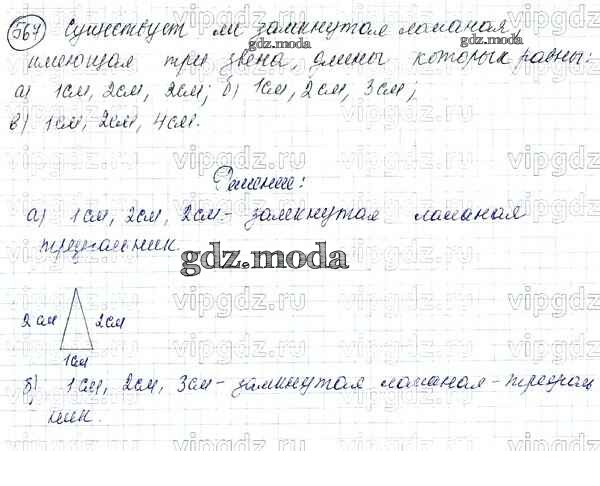 567 Существует ли замкнутая ломаная,
имеющая три звена, длины которых равны:
а) 1см, 2см, 2см; б) 1см, 2см, 3см;
в) 1см, 2см, 4см.
Решение:
а) 1см, 2см, 2см - замкнутая ломаная
треугольник.
gdz.moda
2см 2см
1см
б) 1см, 2см, 3см - замкнутая ломаная - треуголь
ник.